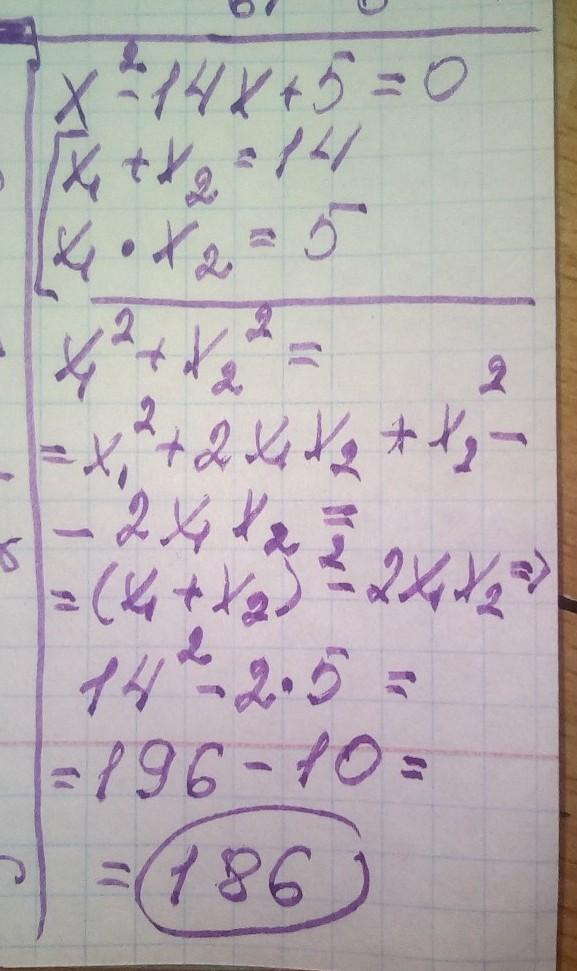 x²-14x+5=0
x₁+x₂=14
x₁•x₂=5
x₁²+x₂²=
=x₁²+2x₁x₂+x₂²-
-2x₁x₂=
=(x₁+x₂)²-2x₁x₂⇒
14²-2•5=
=196-10=
=186